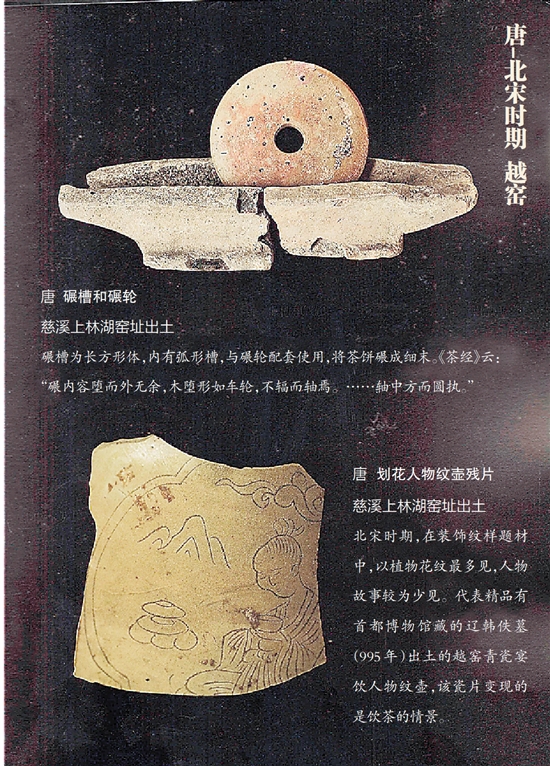 唐-北宋时期 越窑
唐 碾槽和碾轮
慈溪上林湖窑址出土
碾槽为长方形体，内有弧形槽，与碾轮配套使用，将茶饼碾成细末。《茶经》云：
“碾内容堕而外无余，木堕形如车轮，不辐而轴焉。……轴中方而圆执。”
唐 划花人物纹壶残片
慈溪上林湖窑址出土
北宋时期，在装饰纹样题材
中，以植物花纹最多见，人物
故事较为少见。代表精品有
首都博物馆藏的辽韩佚墓
(995年)出土的越窑青瓷宴
饮人物纹壶，该瓷片变现的
是饮茶的情景。